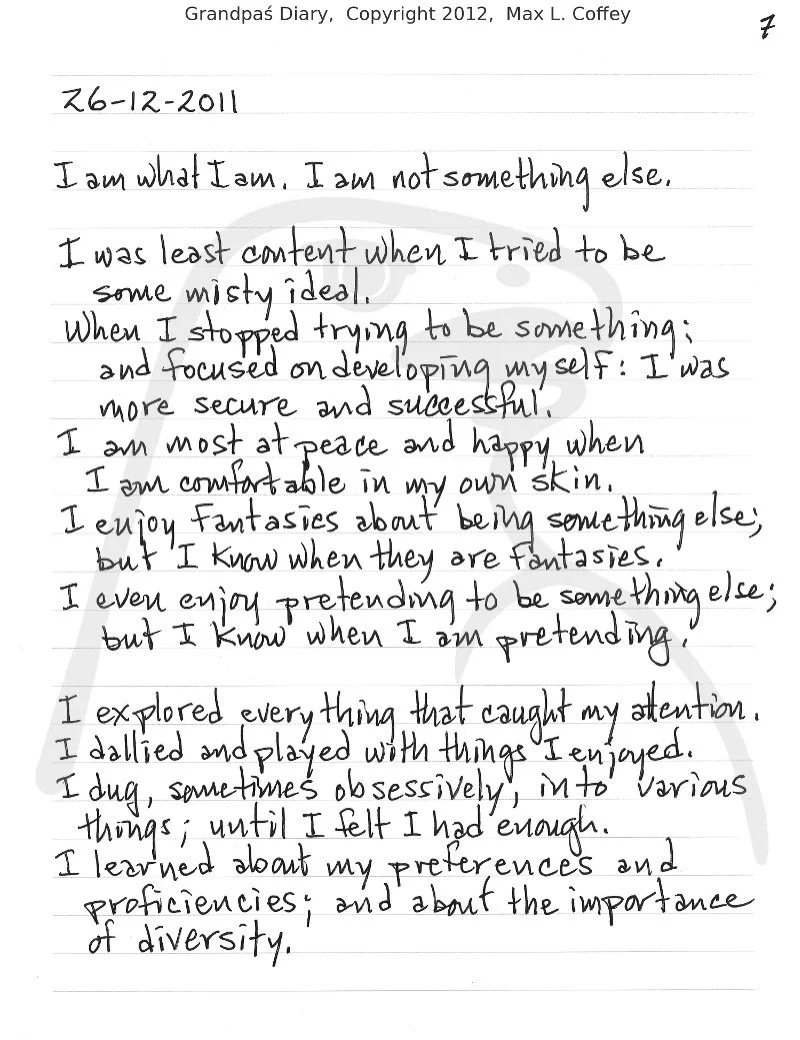 Grandpaś Diary, Copyright 2012, Max L. Coffey
7
26-12-2011
I am what I am. I am not something else.
I was least content when I tried to be
some misty ideal.
When I stopped trying to be something;
and focused on developing myself: I was
more secure and successful.
I am most at peace and happy when
I am comfortable in my own skin.
I enjoy fantasies about being something else;
but I know when they are fantasies.
I even enjoy pretending to be something else;
but I know when I am pretending.
I explored everything that caught my attention.
I dallied and played with things I enjoyed.
I dug, sometimes obsessively, into various
things; until I felt I had enough.
I learned about my preferences and
proficiencies; and about the importance
of diversity.